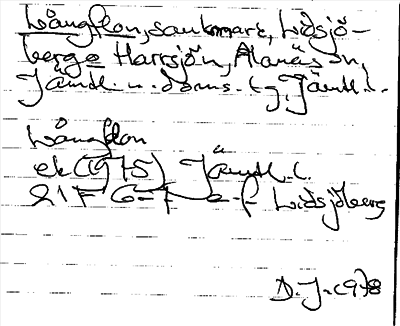 Långflon, sankmark, Lidsjö-
berge Harrsjön, Alanäs sn,
Jämtl. n. doms. tg, Jämtl. l.
Långflon
ek (1975) Jämtl. l.
21F 6-7 e-f Lidsjöberg
D.J. 1978